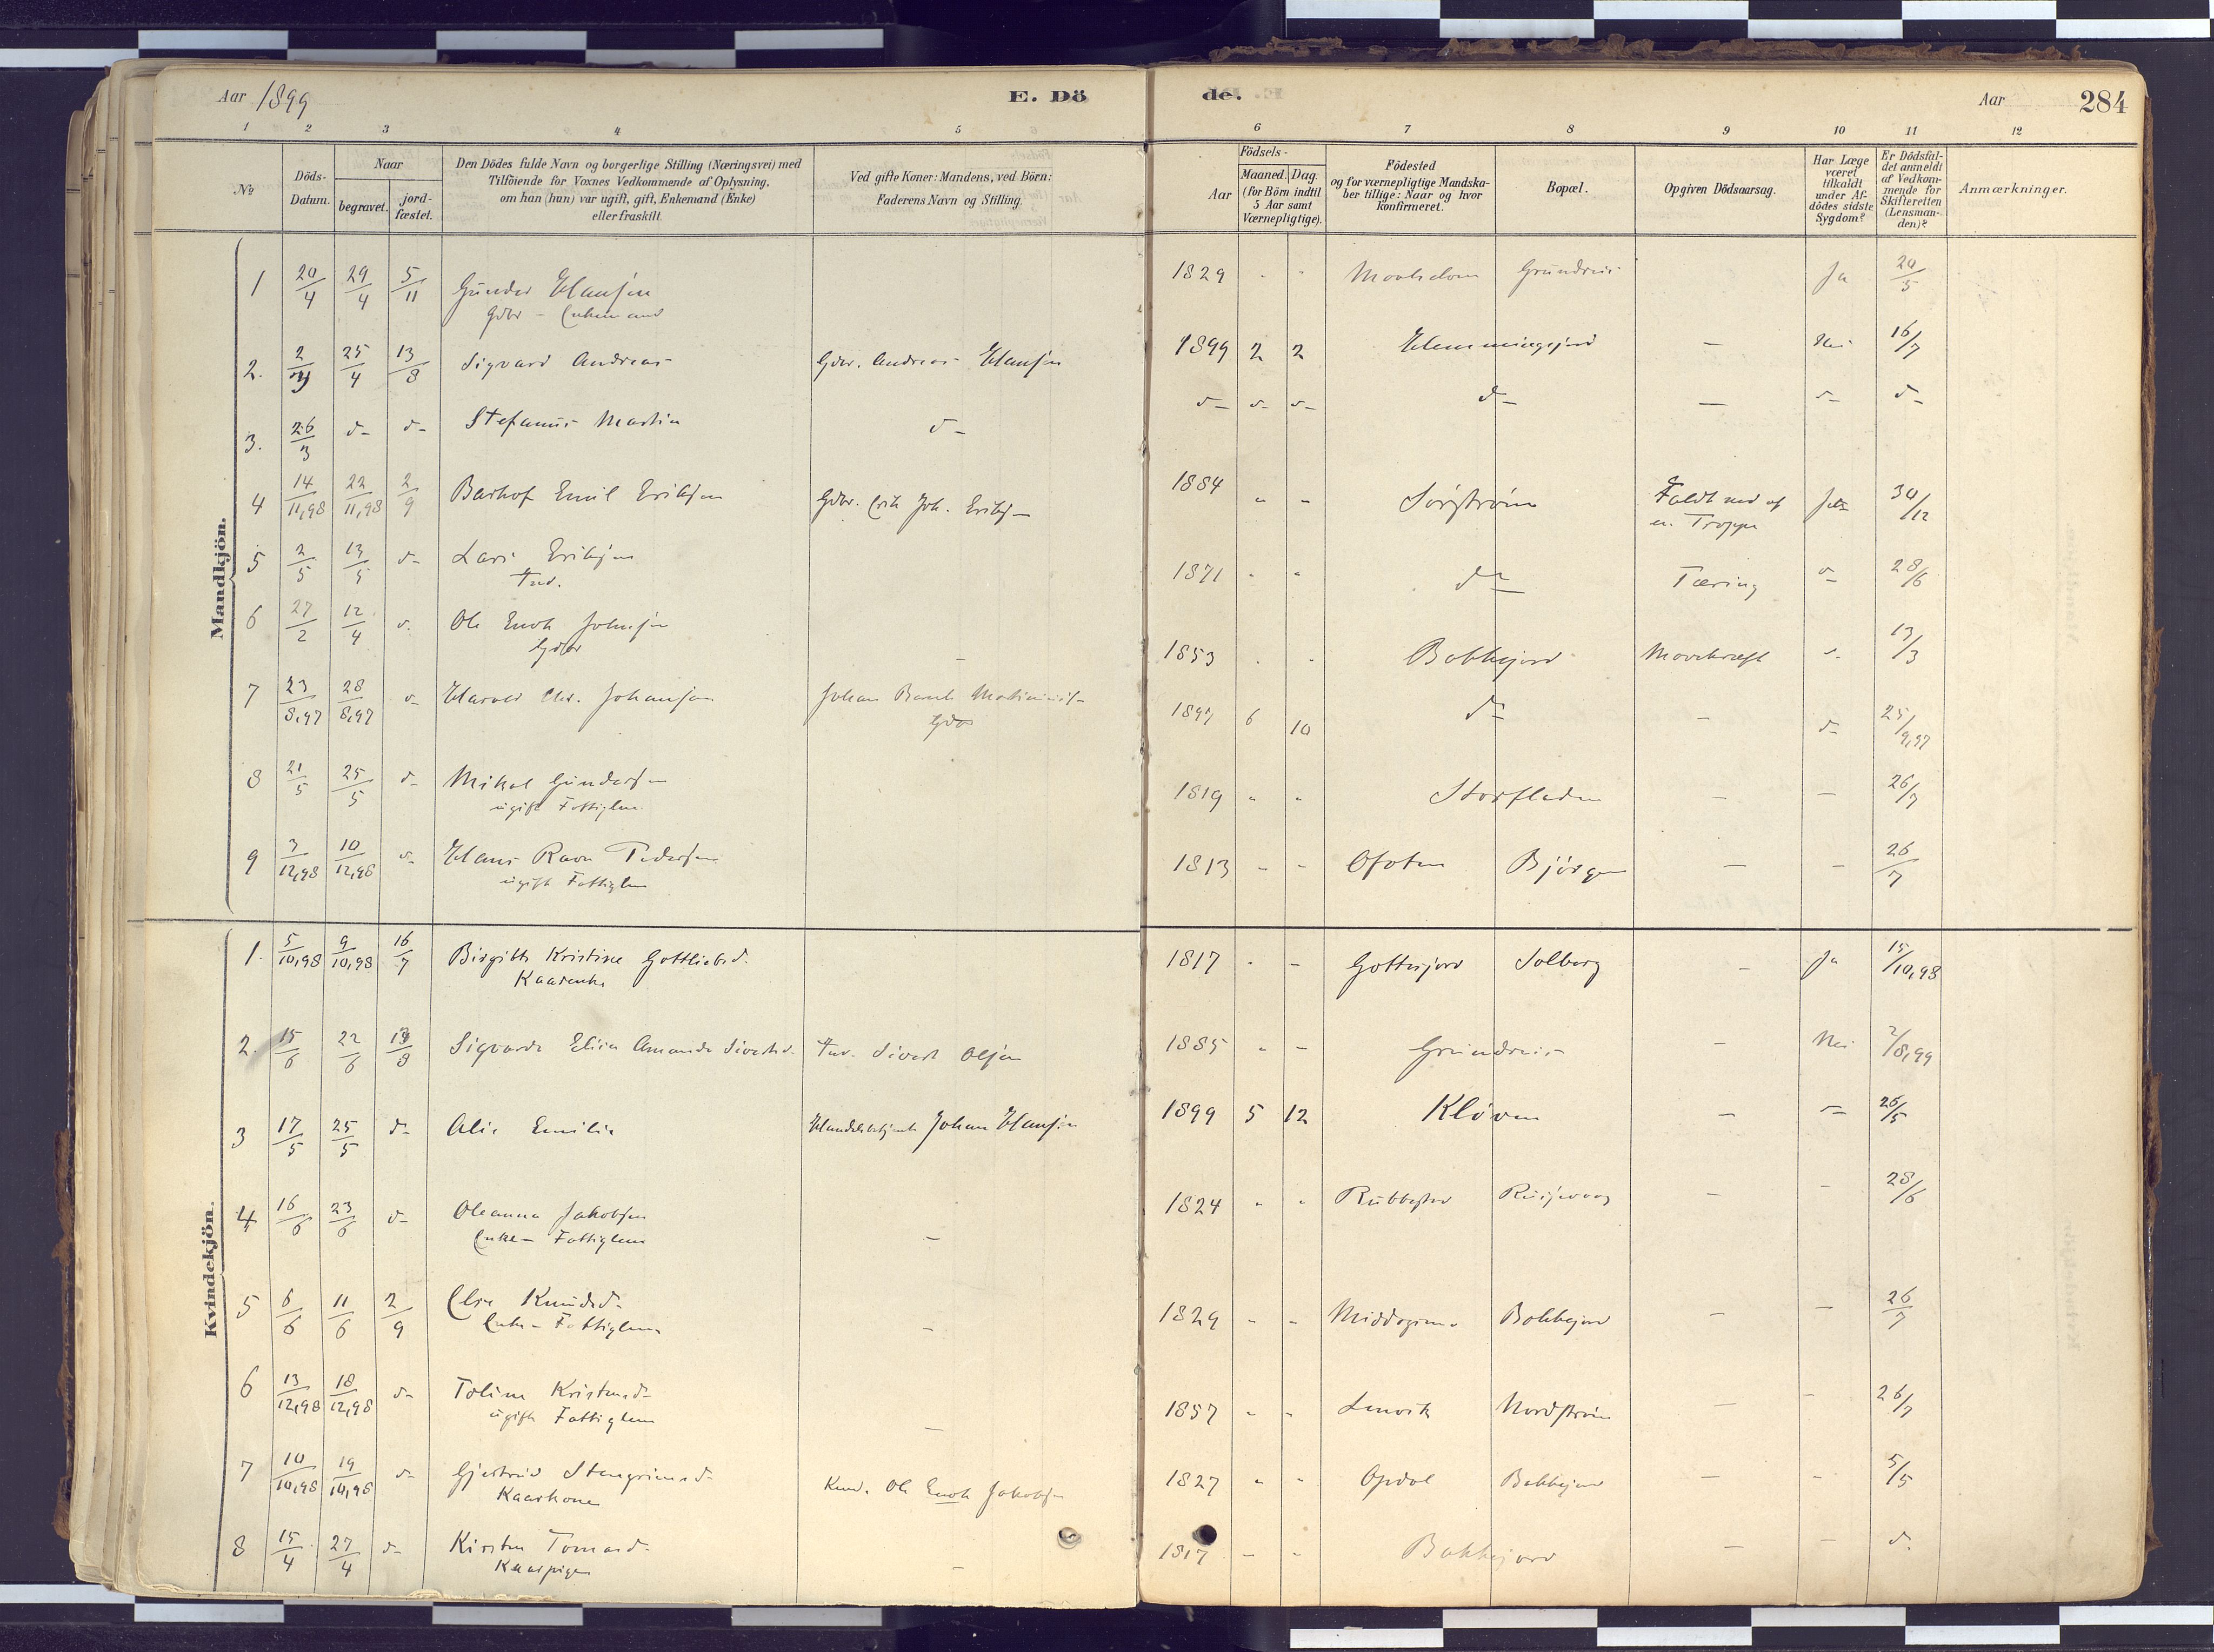 Aar 1899 E. Dö de. Aar 284
1 2 3 4 5 6 7 8 9 10 11 12
No
Döds-Datum.
Naar
begravet.
jord-fæstet.
Den Dödes fulde Navn og borgerlige Stilling (Næringsvei) med
Tilföiende for Voxnes Vedkommende af Oplysning,
om han (hun) var ugift, gift, Enkemand (Enke)
eller fraskilt.
Ved gifte Koner: Mandens, ved Börn:
Faderens Navn og Stilling.
Födsels-
Aar
Maaned. Dag.
(for Börn indtil
5 Aar samt
Værnepligtige).
Födested
og for værnepligtige Mandska-
ber tillige: Naar og hvor
konfirmeret.
Bopæl.
Opgiven Dödsaarsag.
Har Læge
været
tilkaldt
under Af-
dödes sidste
Sygdom?
Er Dödsfal-
det anmeldt
af Vedkom-
mende for
Skifteretten
(Lensman-
den)?
Anmærkninger.
Mandkjön.
1 20/4 29/4 5/11 Gunder Hansen 1829 " " Grundreis Ja 20/5
Gdbr - Enkemand
2. 2/4 25/4 13/8 Sigvard Andreas Gdbr. Andreas Hansen 1899 2 2 Hemmingsjord — Nei 16/7
3. 26/3 d- d- Stefanus Martin d- d- d- d- d- — d- d-
4 14/11,98 22/11,98 2/9 Barhof Emil Eriksen Gdbr. Erik Joh. Eriks- 1884 " " Sörström Faldt ned af
en Trappe 30/12
5 2/5 13/5 d- Lars Eriksen 1871 " " d- Tæring d- 28/6
Ind.
6 27/2 12/4 d. Ole Enok Johnsen 1853 " " Bakkejord d. 13/3
Gdbr —
7 23/8,97 28/8,97 d- Harald Chr. Johansen Johan Bernh. 1897 6 10 d- — d- 25/9,97
Gdbr
8 21/5 25/5 d- Mikal Gundersen 1819 " " Storfladen — — 26/7
ugift Fattiglem
9 3/12,98 10/12,98 d- Hans Ravn Pedersen 1813 " " Ofoten Björgen — — 26/7
ugift Fattiglem
Kvindekjön.
1. 5/10,98 9/10,98 16/7 Birgitte Kristine Gottliebsd. 1817 " — Gottesjord Solberg — Ja 15/10,98
Kaarenke
2. 15/6 22/6 13/8 Sigvarda Elisa Amanda Sivertsd. Ind. Sivert Olsen 1885 " — Grundreis — Nei 2/8,99
3 17/5 25/5 d- Emilie Handelsbetjent Johan Hansen 1899 5 12 Klöven — d- 26/5
4 16/6 23/6 d- Oleanna Jakobsen 1824 " " — - 28/6
Enke - Fattiglem —
5 6/6 11/6 2/9 Else Knudsd. 1829 " " Bakkejord — — 26/7
Enke - Fattiglem —
6 13/12,98 18/12,98 d- Toline Kristensd- 1857 " " Lenvik Nordström — - 26/7
ugift Fattiglem —
7 10/10,98 19/10,98 d- Gjertrud Stengrimsd- Ole Enok Jakobsen 1827 " " Opdal Bakkejord — - 5/5
Kaarkone
8 15/4 27/4 d- Kirsten Tomasd. 1817 — " Bakkejord — — d.
Kaarpige —